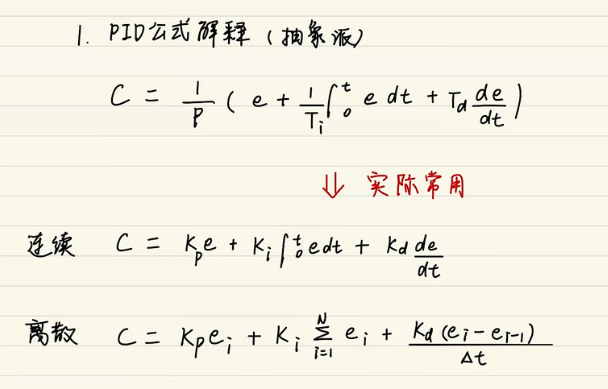 1. PID公式解释(抽象派)
C = 1/P ( e + 1/Ti ∫₀ᵗ e dt + Td de/dt )
⇓ 实际常用
连续 C = Kpe + Ki∫₀ᵗedt + Kd de/dt
离散 C = Kpei + Ki Σᵢ₌₁ᴺ ei + Kd(ei-ei-1)/Δt